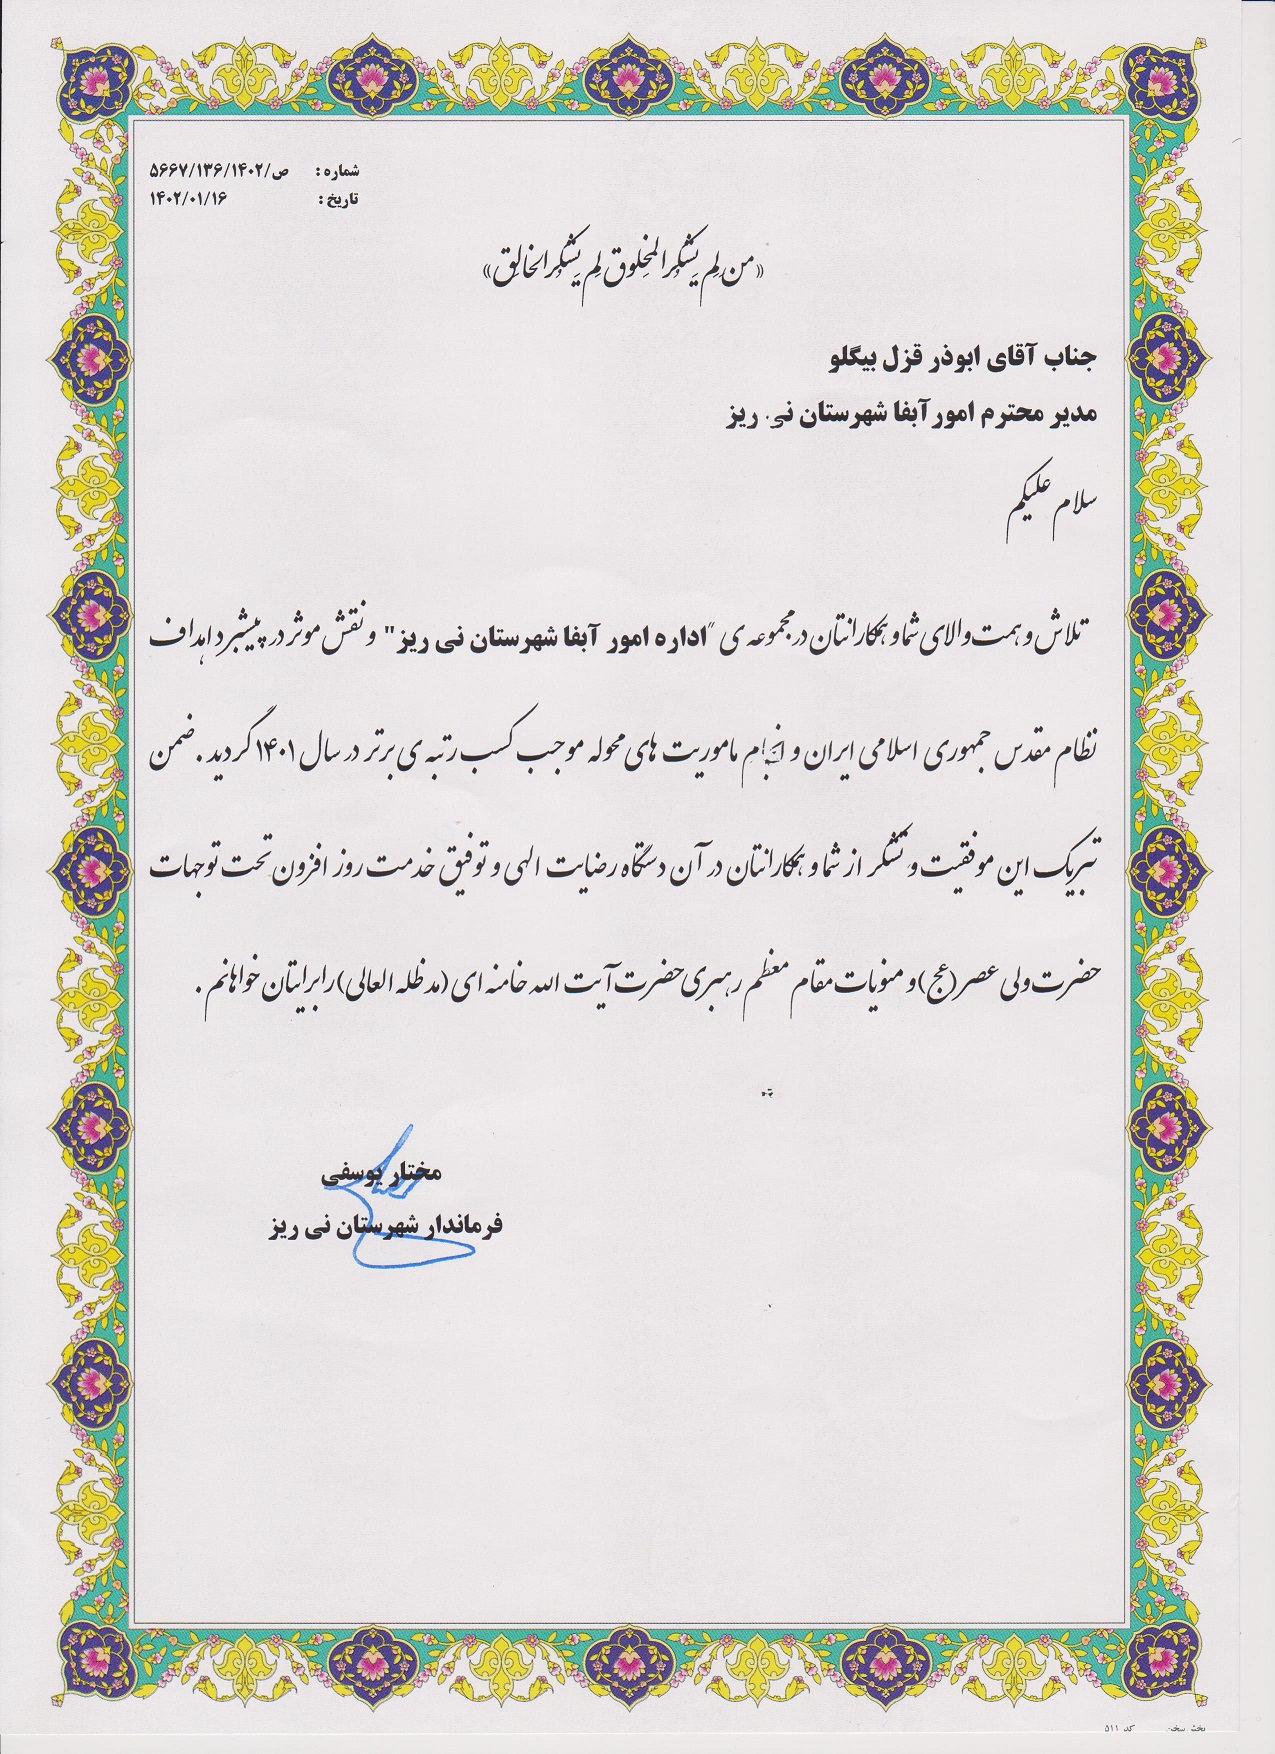 شماره : ص/۵۶۶۷/۱۳۶/۱۴۰۲
تاریخ : ۱۴۰۲/۰۱/۱۶
«من لم یشکر المخلوق لم یشکر الخالق»
جناب آقای ابوذر قزل بیگلو
مدیر محترم امور آبفا شهرستان نی ریز
سلام علیکم
تلاش و همت والای شما و همکارانتان در مجموعه ی "اداره امور آبفا شهرستان نی ریز" و نقش موثر در پیشبرد اهداف
نظام مقدس جمهوری اسلامی ایران و انجام ماموریت های محوله موجب کسب رتبه ی برتر در سال ۱۴۰۱ گردید . ضمن
تبریک این موفقیت و تشکر از شما و همکارانتان در آن دستگاه رضایت الهی و توفیق خدمت روز افزون تحت توجهات
حضرت ولی عصر (عج) و منویات مقام معظم رهبری حضرت آیت الله خامنه ای (مدظله العالی) را برایتان خواهانم .
مختار یوسفی
فرماندار شهرستان نی ریز
کد ۵۱۱